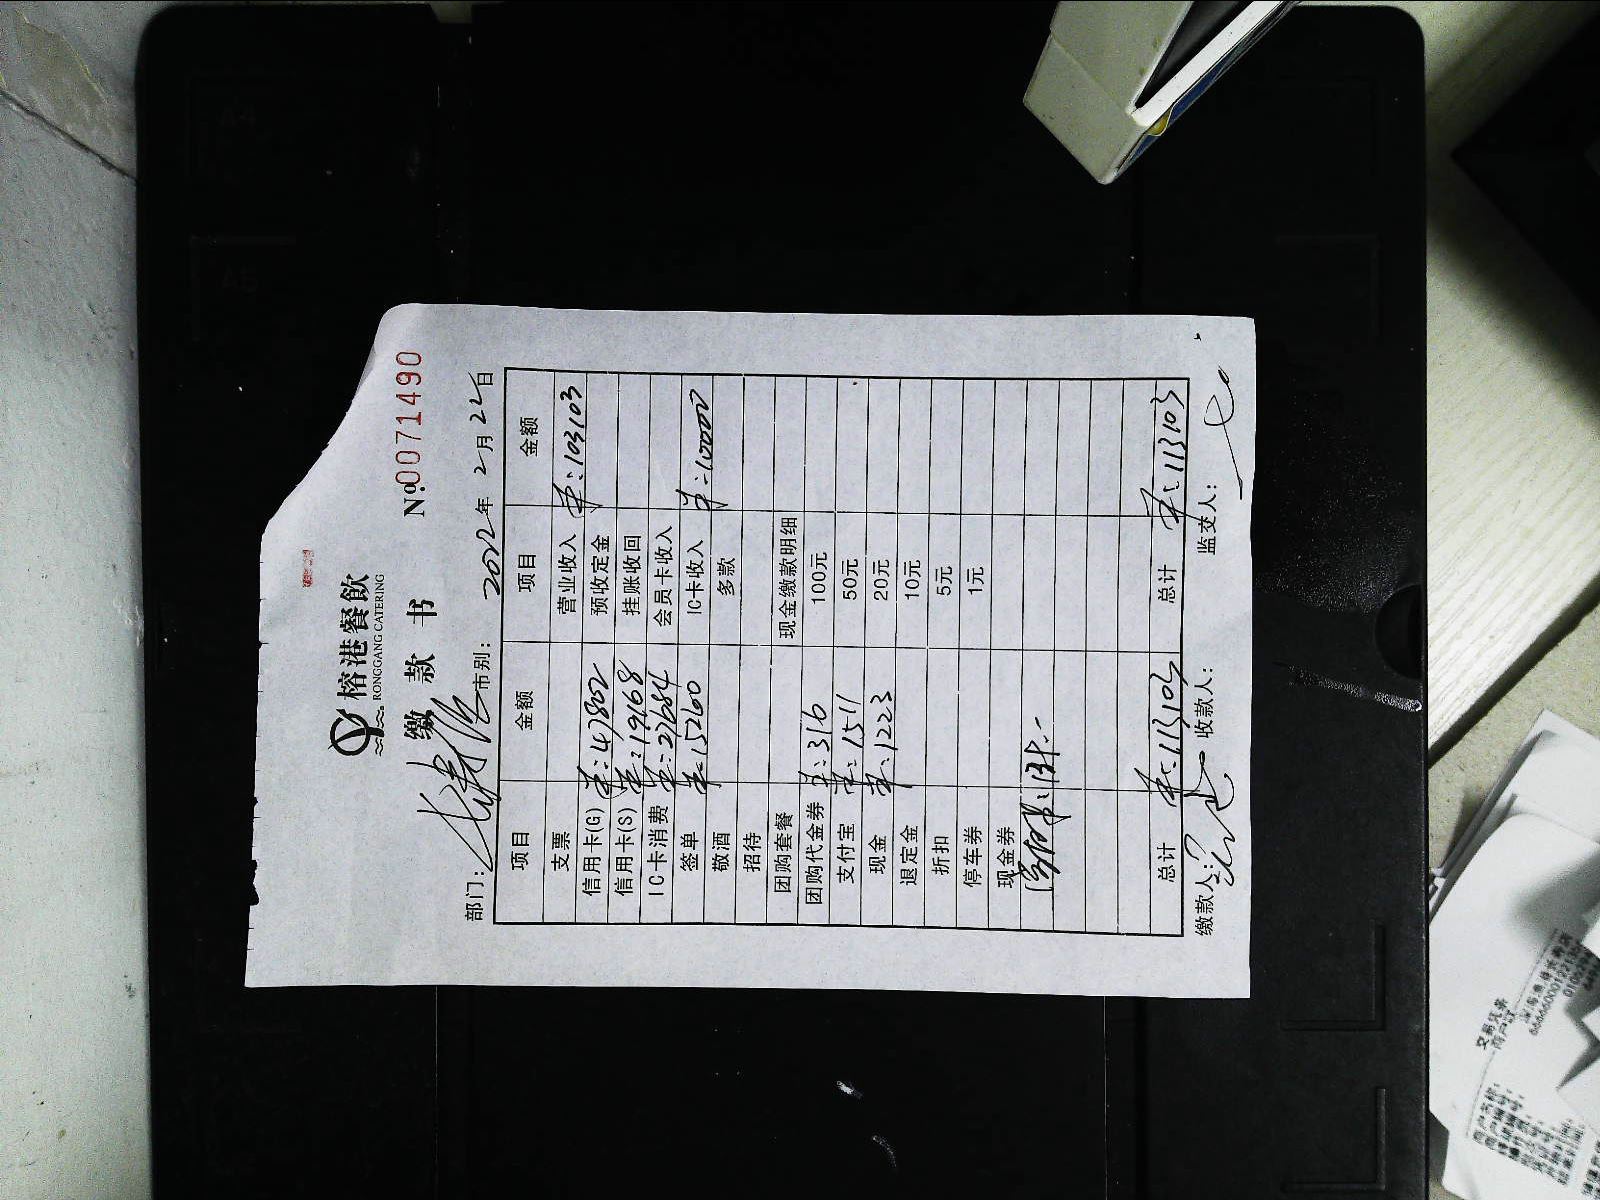 榕港餐飲
RONGGANG CATERING
缴款书
№0071490
部门: 市别: 2022年2月22日
项目 金额 项目 金额
支票 营业收入 ¥:103103
信用卡(G) ¥:47802 预收定金
信用卡(S) ¥:19168 挂账收回
IC卡消费 ¥:27684 会员卡收入
签单 ¥:15260 IC卡收入 ¥:10000
敬酒 多款
招待
团购套餐 现金缴款明细
团购代金券 ¥:316 100元
支付宝 ¥:1511 50元
现金 ¥:1223 20元
退定金 10元
折扣 5元
停车券 1元
现金券
总计 ¥:113103 总计 ¥:113103
缴款人: 收款人: 监交人:
A4
A5